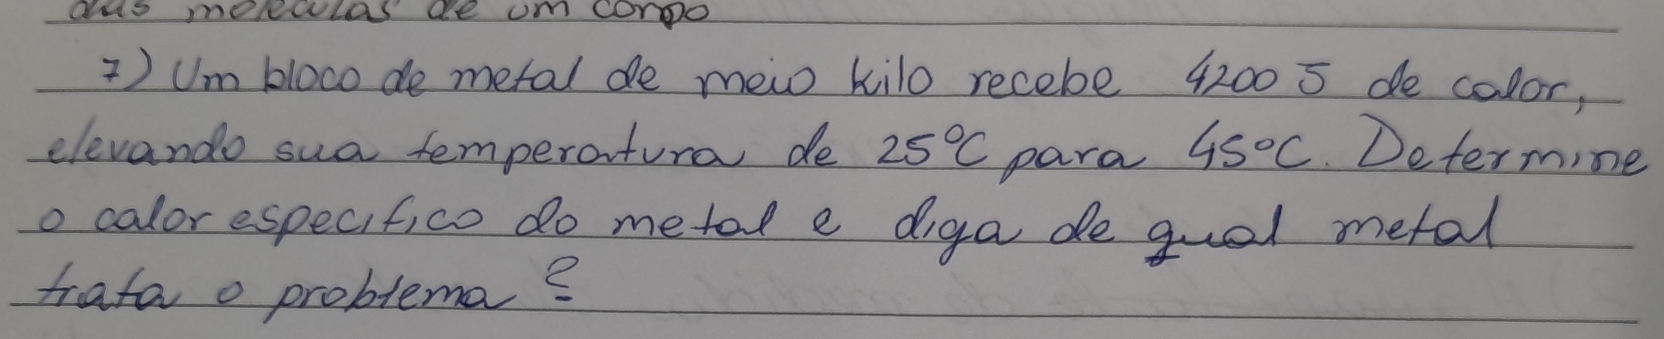 das moleculas de um corpo
7) Um bloco de metal de meio kilo recebe 4200 J de calor,
elevando sua temperatura de 25°C para 45°C. Determine
o calor especifico do metal e diga de qual metal
trata o problema?